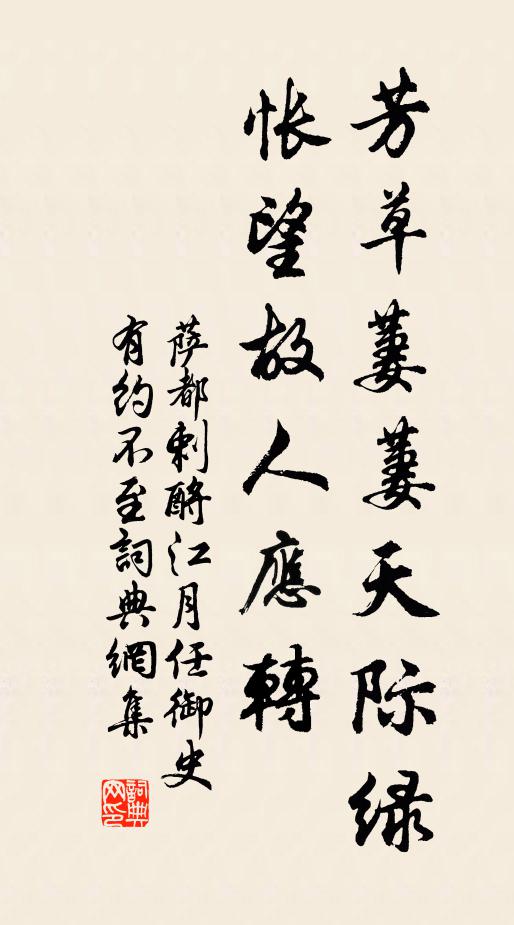 芳草萋萋天际绿
怅望故人應轉
萨都剌酹江月任御史
有约不至詞典網集
詞典
网印